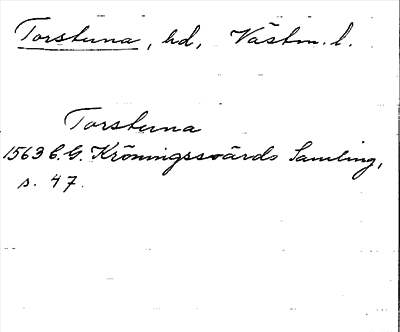 Torstuna, hd, Västm. l.
Torstuna
1563 C. G. Kröningssvärds Samling,
s. 47.